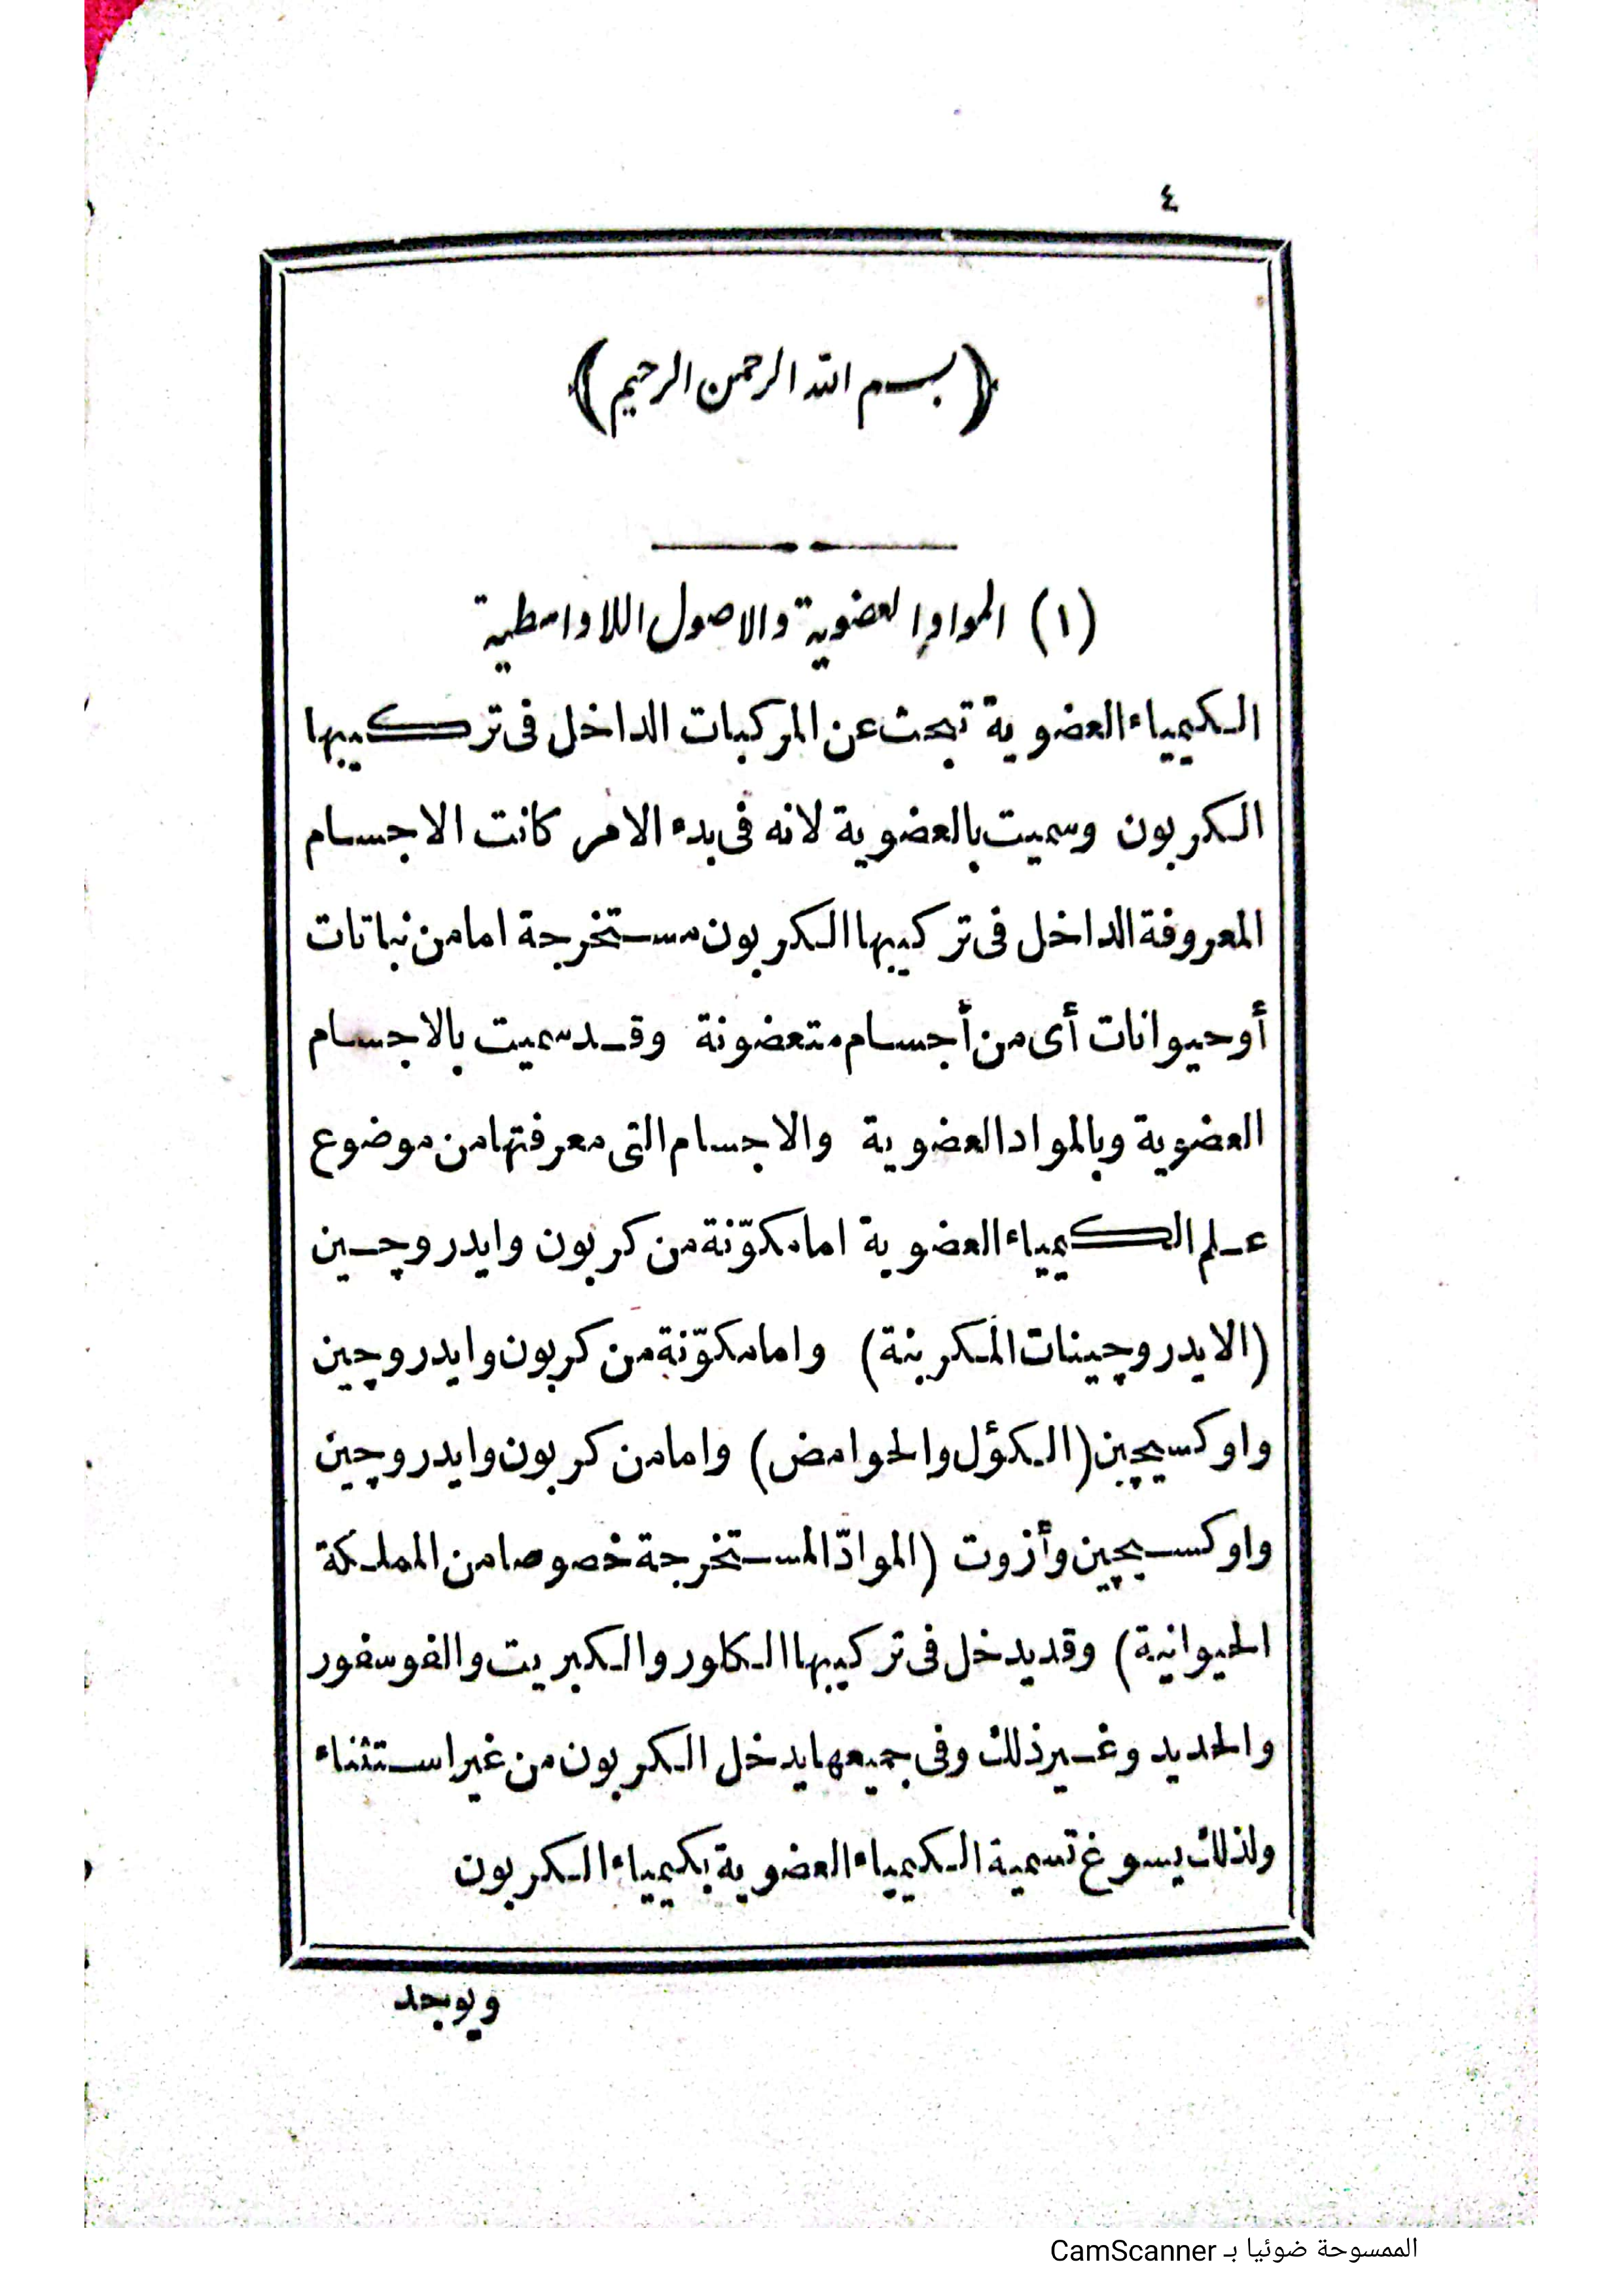 ٤
﴿بسم الله الرحمن الرحيم﴾
(١) المواد العضوية والاصول اللاواسطية
الكيمياء العضوية تبحث عن المركبات الداخل فى تركيبها
الكربون وسميت بالعضوية لانه فى بدء الامر كانت الاجسام
المعروفة الداخل فى تركيبها الكربون مستخرجة اما من نباتات
أو حيوانات أى من أجسام متعضونة وقد سميت بالاجسام
العضوية وبالمواد العضوية والاجسام التى معرفتها من موضوع
علم الكيمياء العضوية اما مكوّنة من كربون وايدروچين
(الايدروچينات المكربنة) واما مكوّنة من كربون وايدروچين
واوكسيچين (الكؤل والحوامض) واما من كربون وايدروچين
واوكسيچين وأزوت (الموادّ المستخرجة خصوصا من المملكة
الحيوانية) وقد يدخل فى تركيبها الكلور والكبريت والفوسفور
والحديد وغير ذلك وفى جميعها يدخل الكربون من غير استثناء
ولذلك يسوغ تسمية الكيمياء العضوية بكيمياء الكربون
ويوجد
الممسوحة ضوئيا بـ CamScanner